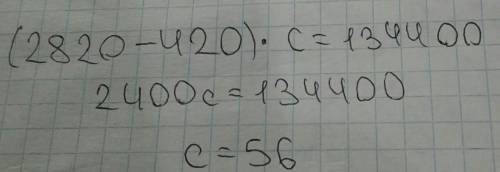 (2820-420)· c=134400
2400c=134400
c=56